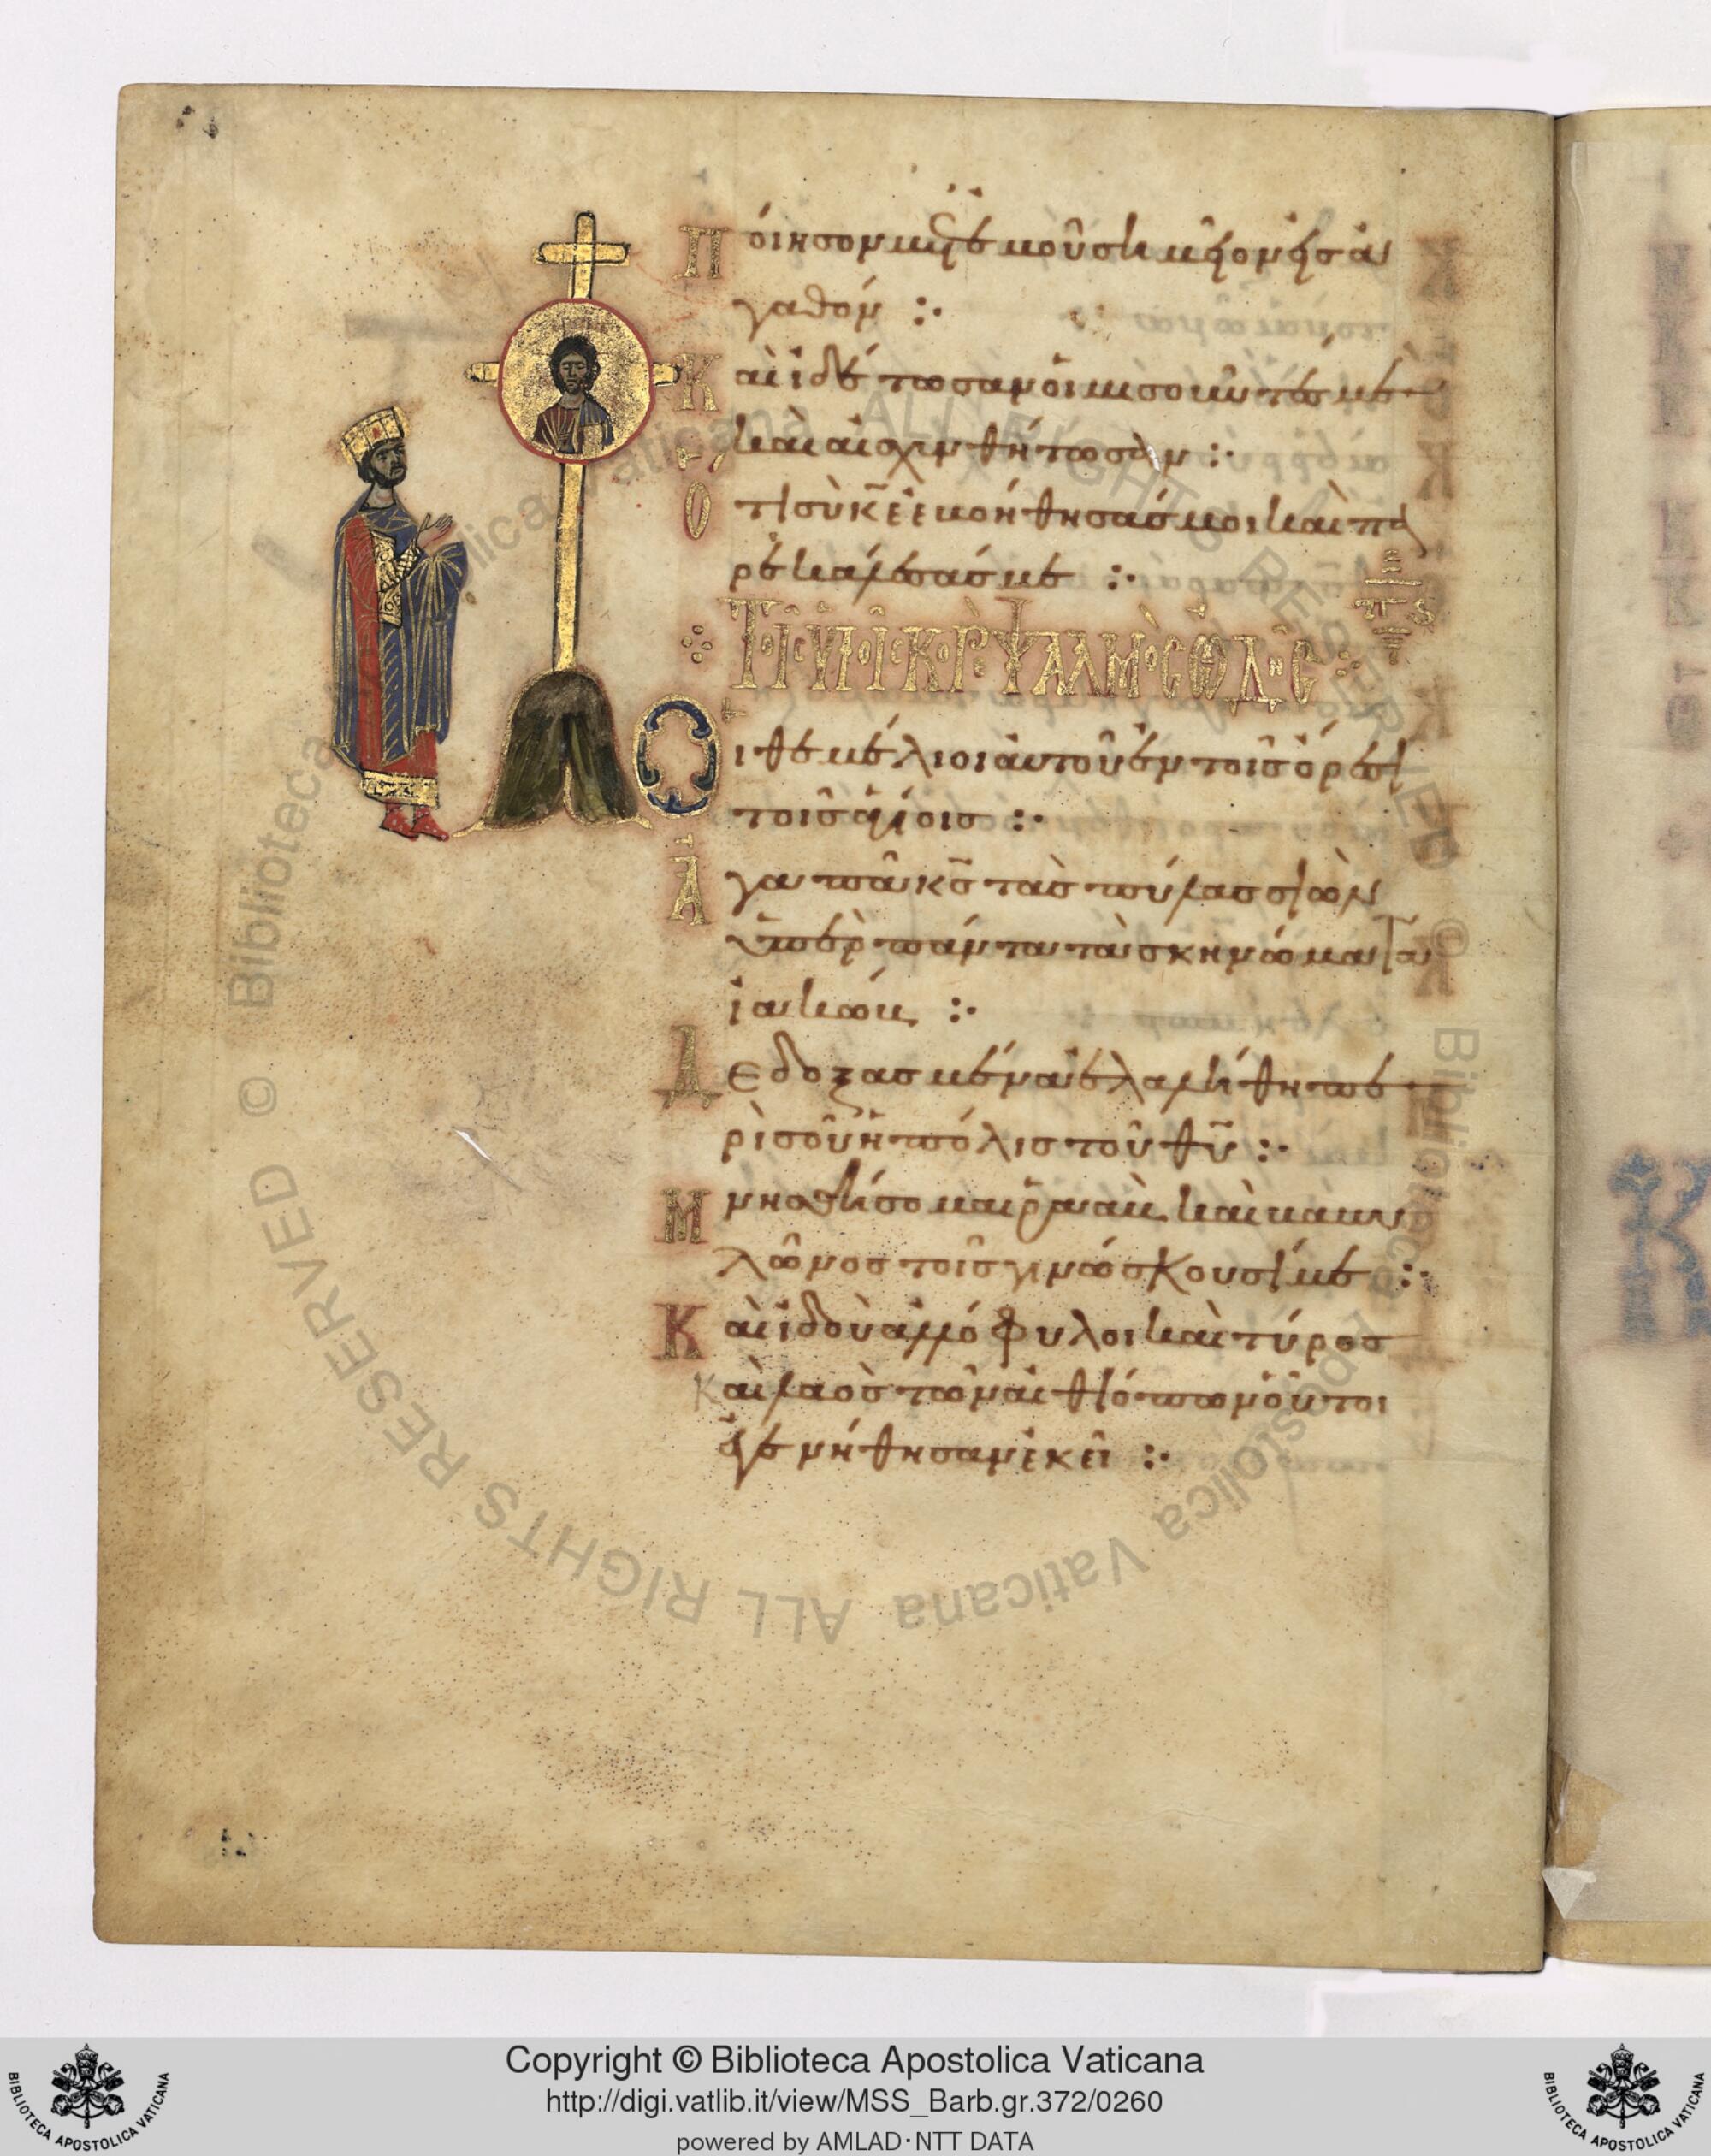 Ποίησον μετ ἐμοῦ σημεῖον εἰς ἀ
γαθόν :·
Καὶ ἰδέτωσαν οἱ μισοῦντές με
καὶ αἰσχυνθήτωσαν :·
Ὅτι σὺ κ̅ε̅ ἐβοήθησάς μοι καὶ πα
ρεκάλεσάς με :·
Τοῖς υἱοῖς Κορὲ ψαλμὸς ᾠδῆς
πς
Οἱ θεμέλιοι αὐτοῦ ἐν τοῖς ὄρεσι
τοῖς ἁγίοις :·
Ἀγαπᾶ κ̅ς̅ τὰς πύλας σιὼν
ὑπὲρ πάντα τὰ σκηνώματα
ἰακώβ :·
Δεδοξασμένα ἐλαλήθη πε
ρὶ σοῦ ἡ πόλις τοῦ θ̅υ̅ :·
Μνησθήσομαι ῥαὰβ καὶ βαβυ
λῶνος τοῖς γινώσκουσί με :·
Καὶ ἰδοὺ ἀλλόφυλοι καὶ τύρος
καὶ λαὸς τῶν αἰθιόπων οὗτοι
ἐγενήθησαν ἐκεῖ :·
Copyright © Biblioteca Apostolica Vaticana
http://digi.vatlib.it/view/MSS_Barb.gr.372/0260
powered by AMLAD·NTT DATA
BIBLIOTECA APOSTOLICA VATICANA
BIBLIOTECA APOSTOLICA VATICANA